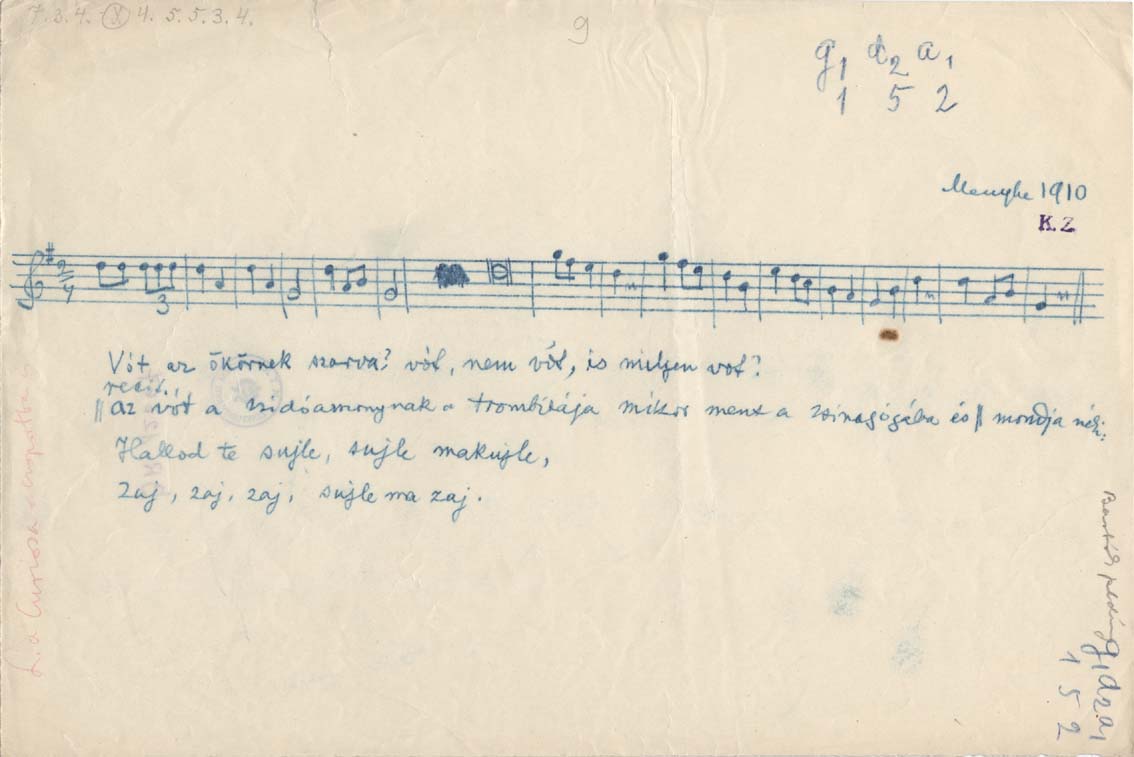 7. 3. 4. X 4. 5. 5. 3. 4.
9
g1 d2 a1
1 5 2
Menyhe 1910
K. Z.
2/4
3
Vót az ökörnek szarva? vót, nem vót, is milyen vot?
recit.
|| az vót a zsidóasszonynak a trombitája mikor ment a zsinagógába és || mondja néki:
Hallod te sujle, sujle makujle,
Zaj, zaj, zaj, sujle ma zaj.
L. a Curiosa csoportba
Bartók
g1 d2 a1
1 5 2